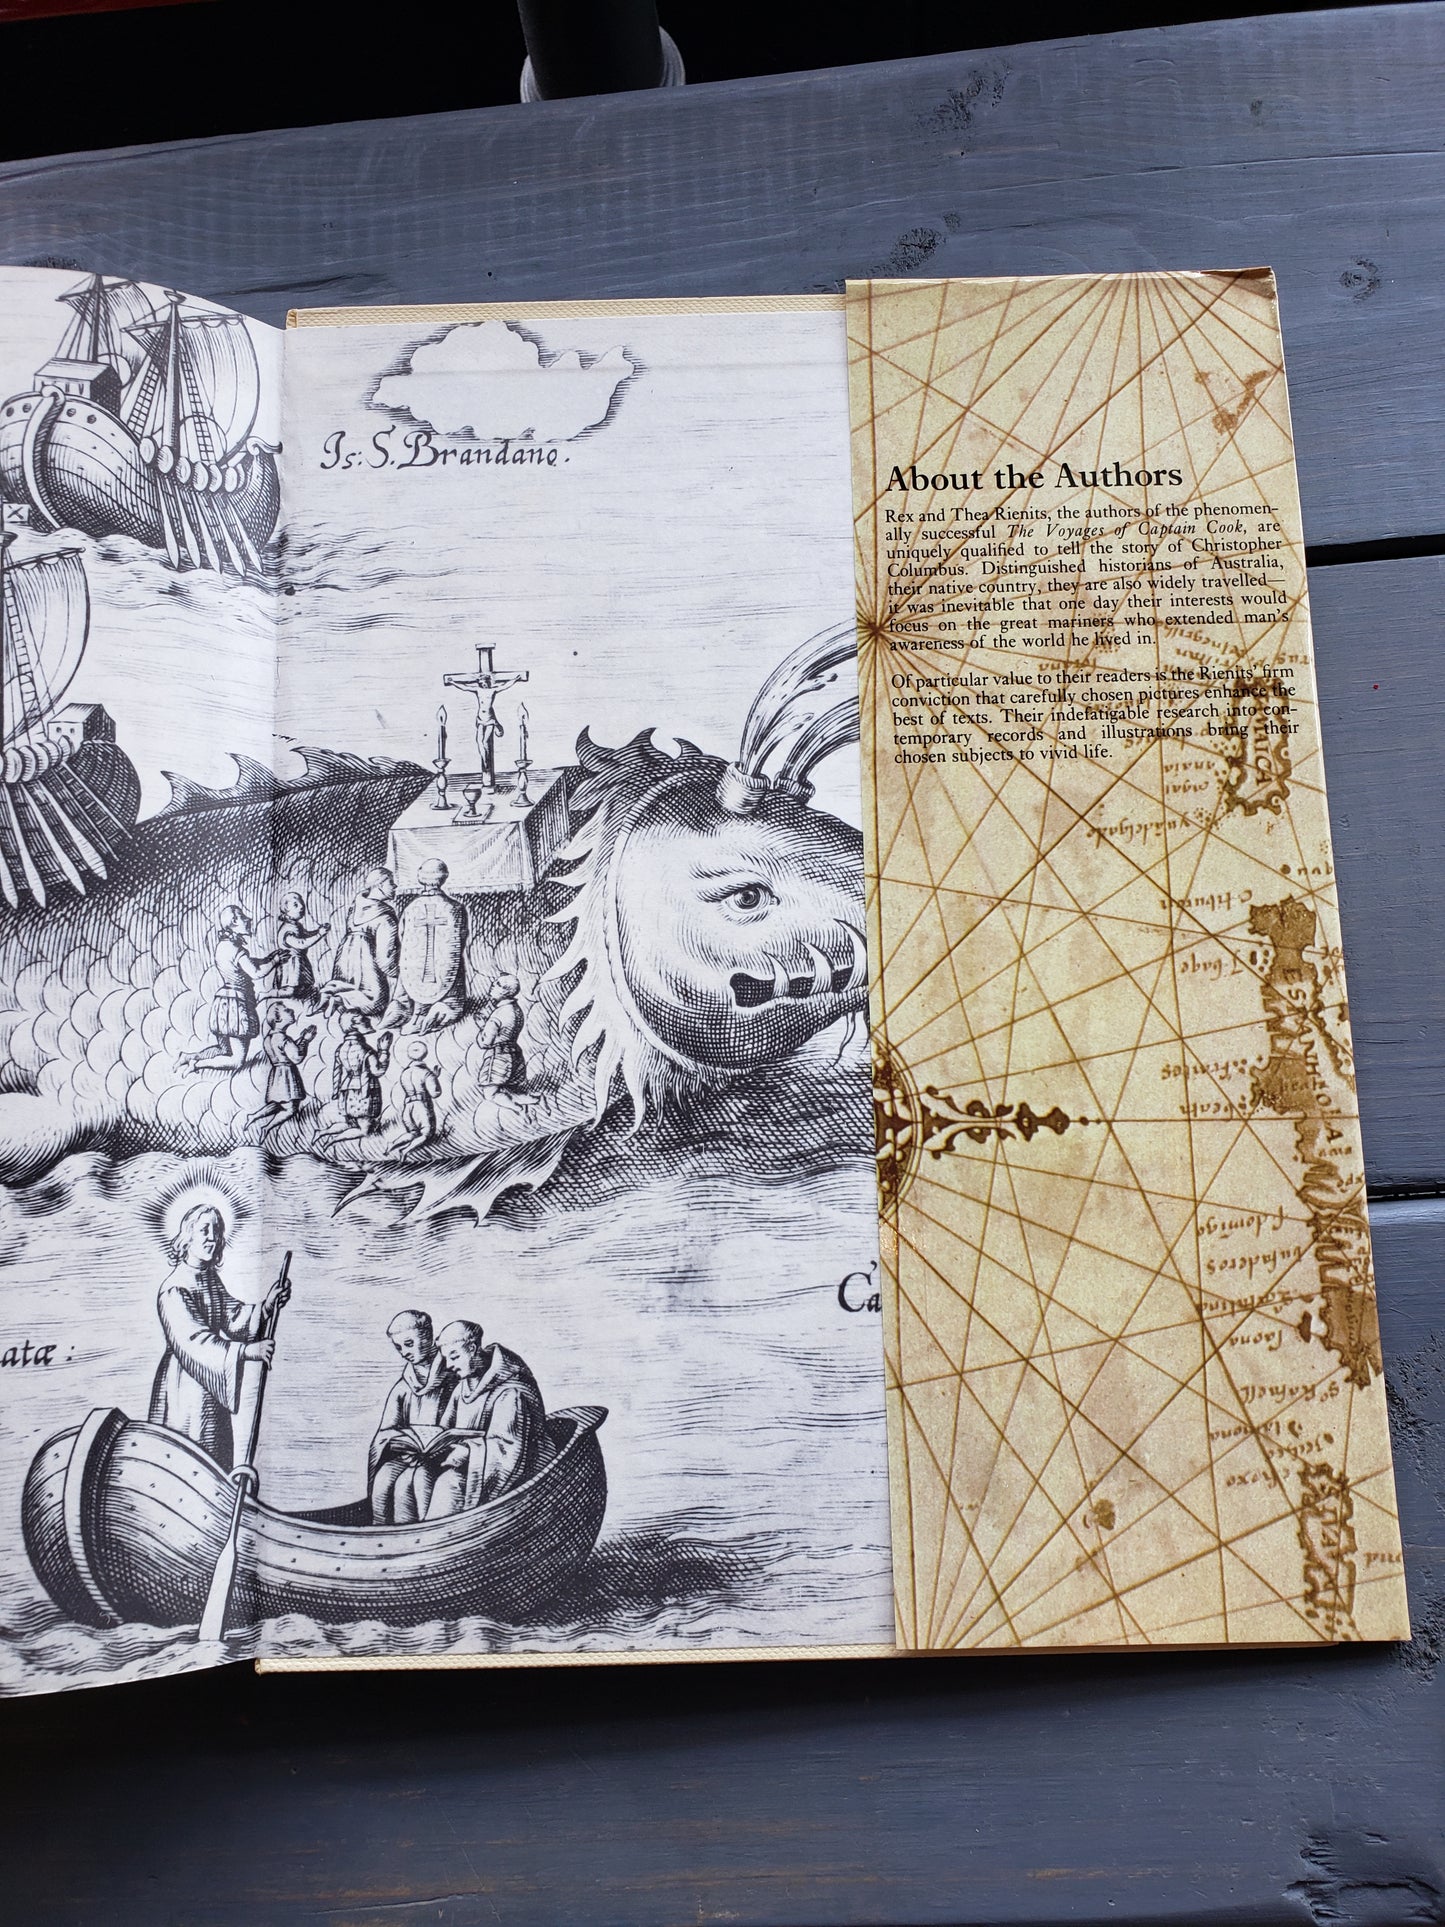 Is: S. Brandano.
atæ:
Ca
About the Authors
Rex and Thea Rienits, the authors of the phenomen-
ally successful The Voyages of Captain Cook, are
uniquely qualified to tell the story of Christopher
Columbus. Distinguished historians of Australia,
their native country, they are also widely travelled—
it was inevitable that one day their interests would
focus on the great mariners who extended man's
awareness of the world he lived in.
Of particular value to their readers is the Rienits' firm
conviction that carefully chosen pictures enhance the
best of texts. Their indefatigable research into con-
temporary records and illustrations bring their
chosen subjects to vivid life.
ESPANHOLA
saona